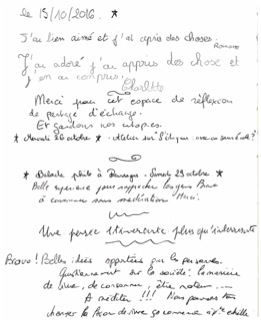 le 15/10/2016. *
J'ai bien aimé et j'ai appris des choses.
Romane
J'ai adoré j'ai appris des chose et
j'en ai compris.
Charlotte
Merci pour cet espace de réflexion
de partage d'échange.
Et gardons nos utopies.
* Mercredi 26 octobre * Atelier sur
* Balade photo à * Samedi 29 octobre *
Belle expérience pour rapprocher les gens Bravo
à consommer sans modération Merci.
Une pensée itinérante plus qu'intéressante
Bravo! Belles idées apportées par les personnes.
Questionnement sur la société: la manière
de vivre, de consommer, être
A méditer!!! Nous pouvons tous
changer la façon de vivre